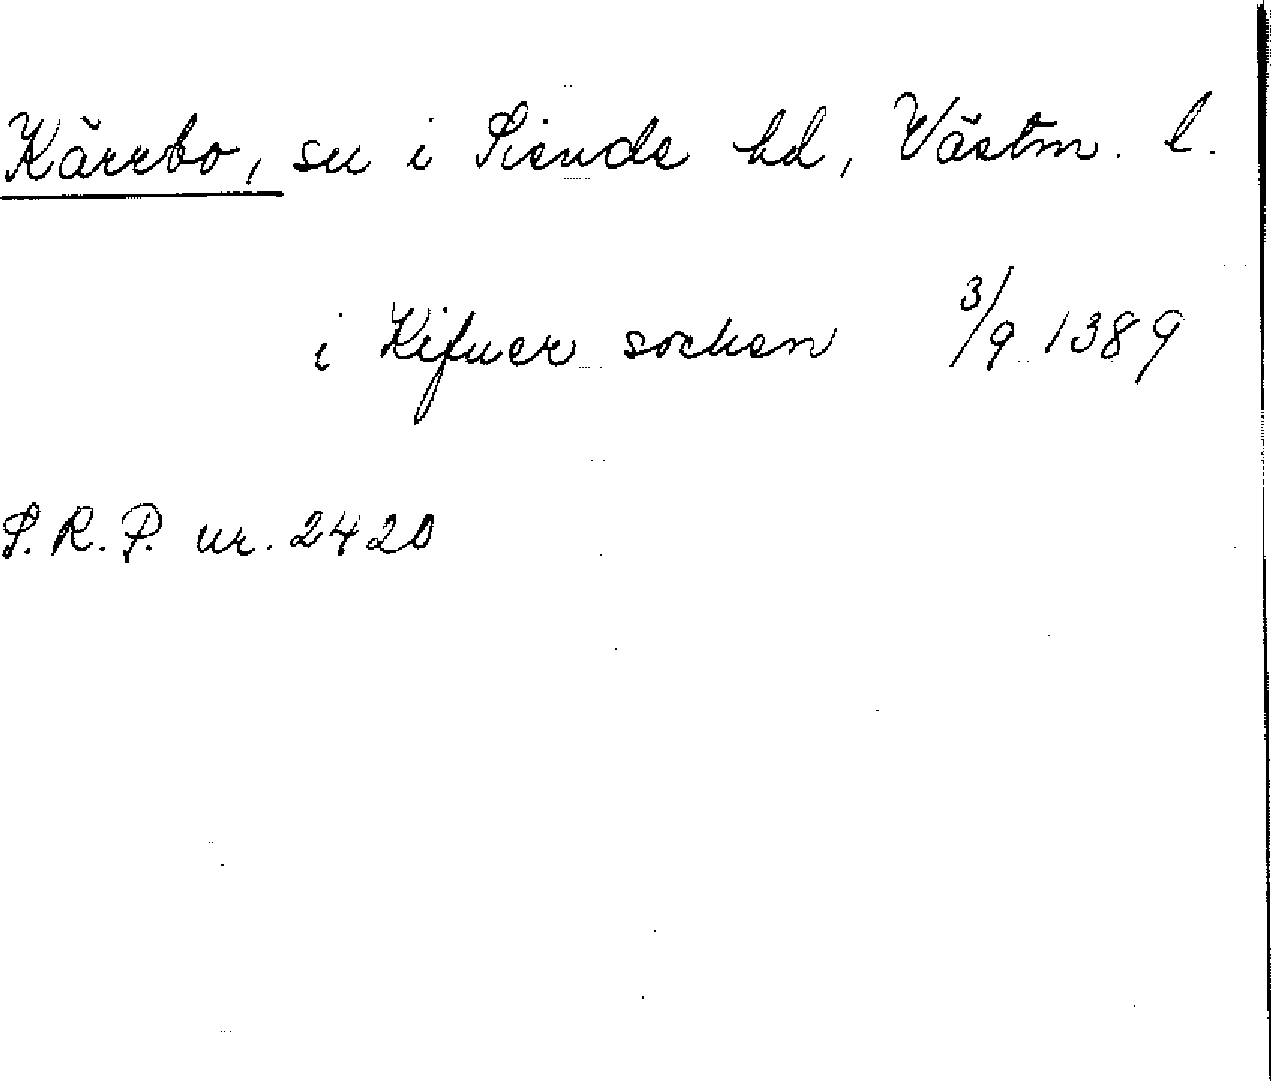 Kärrbo, sn i Siende hd, Västm. l.
i Kifuer socken 3/9 1389
S.R.P. nr. 2420